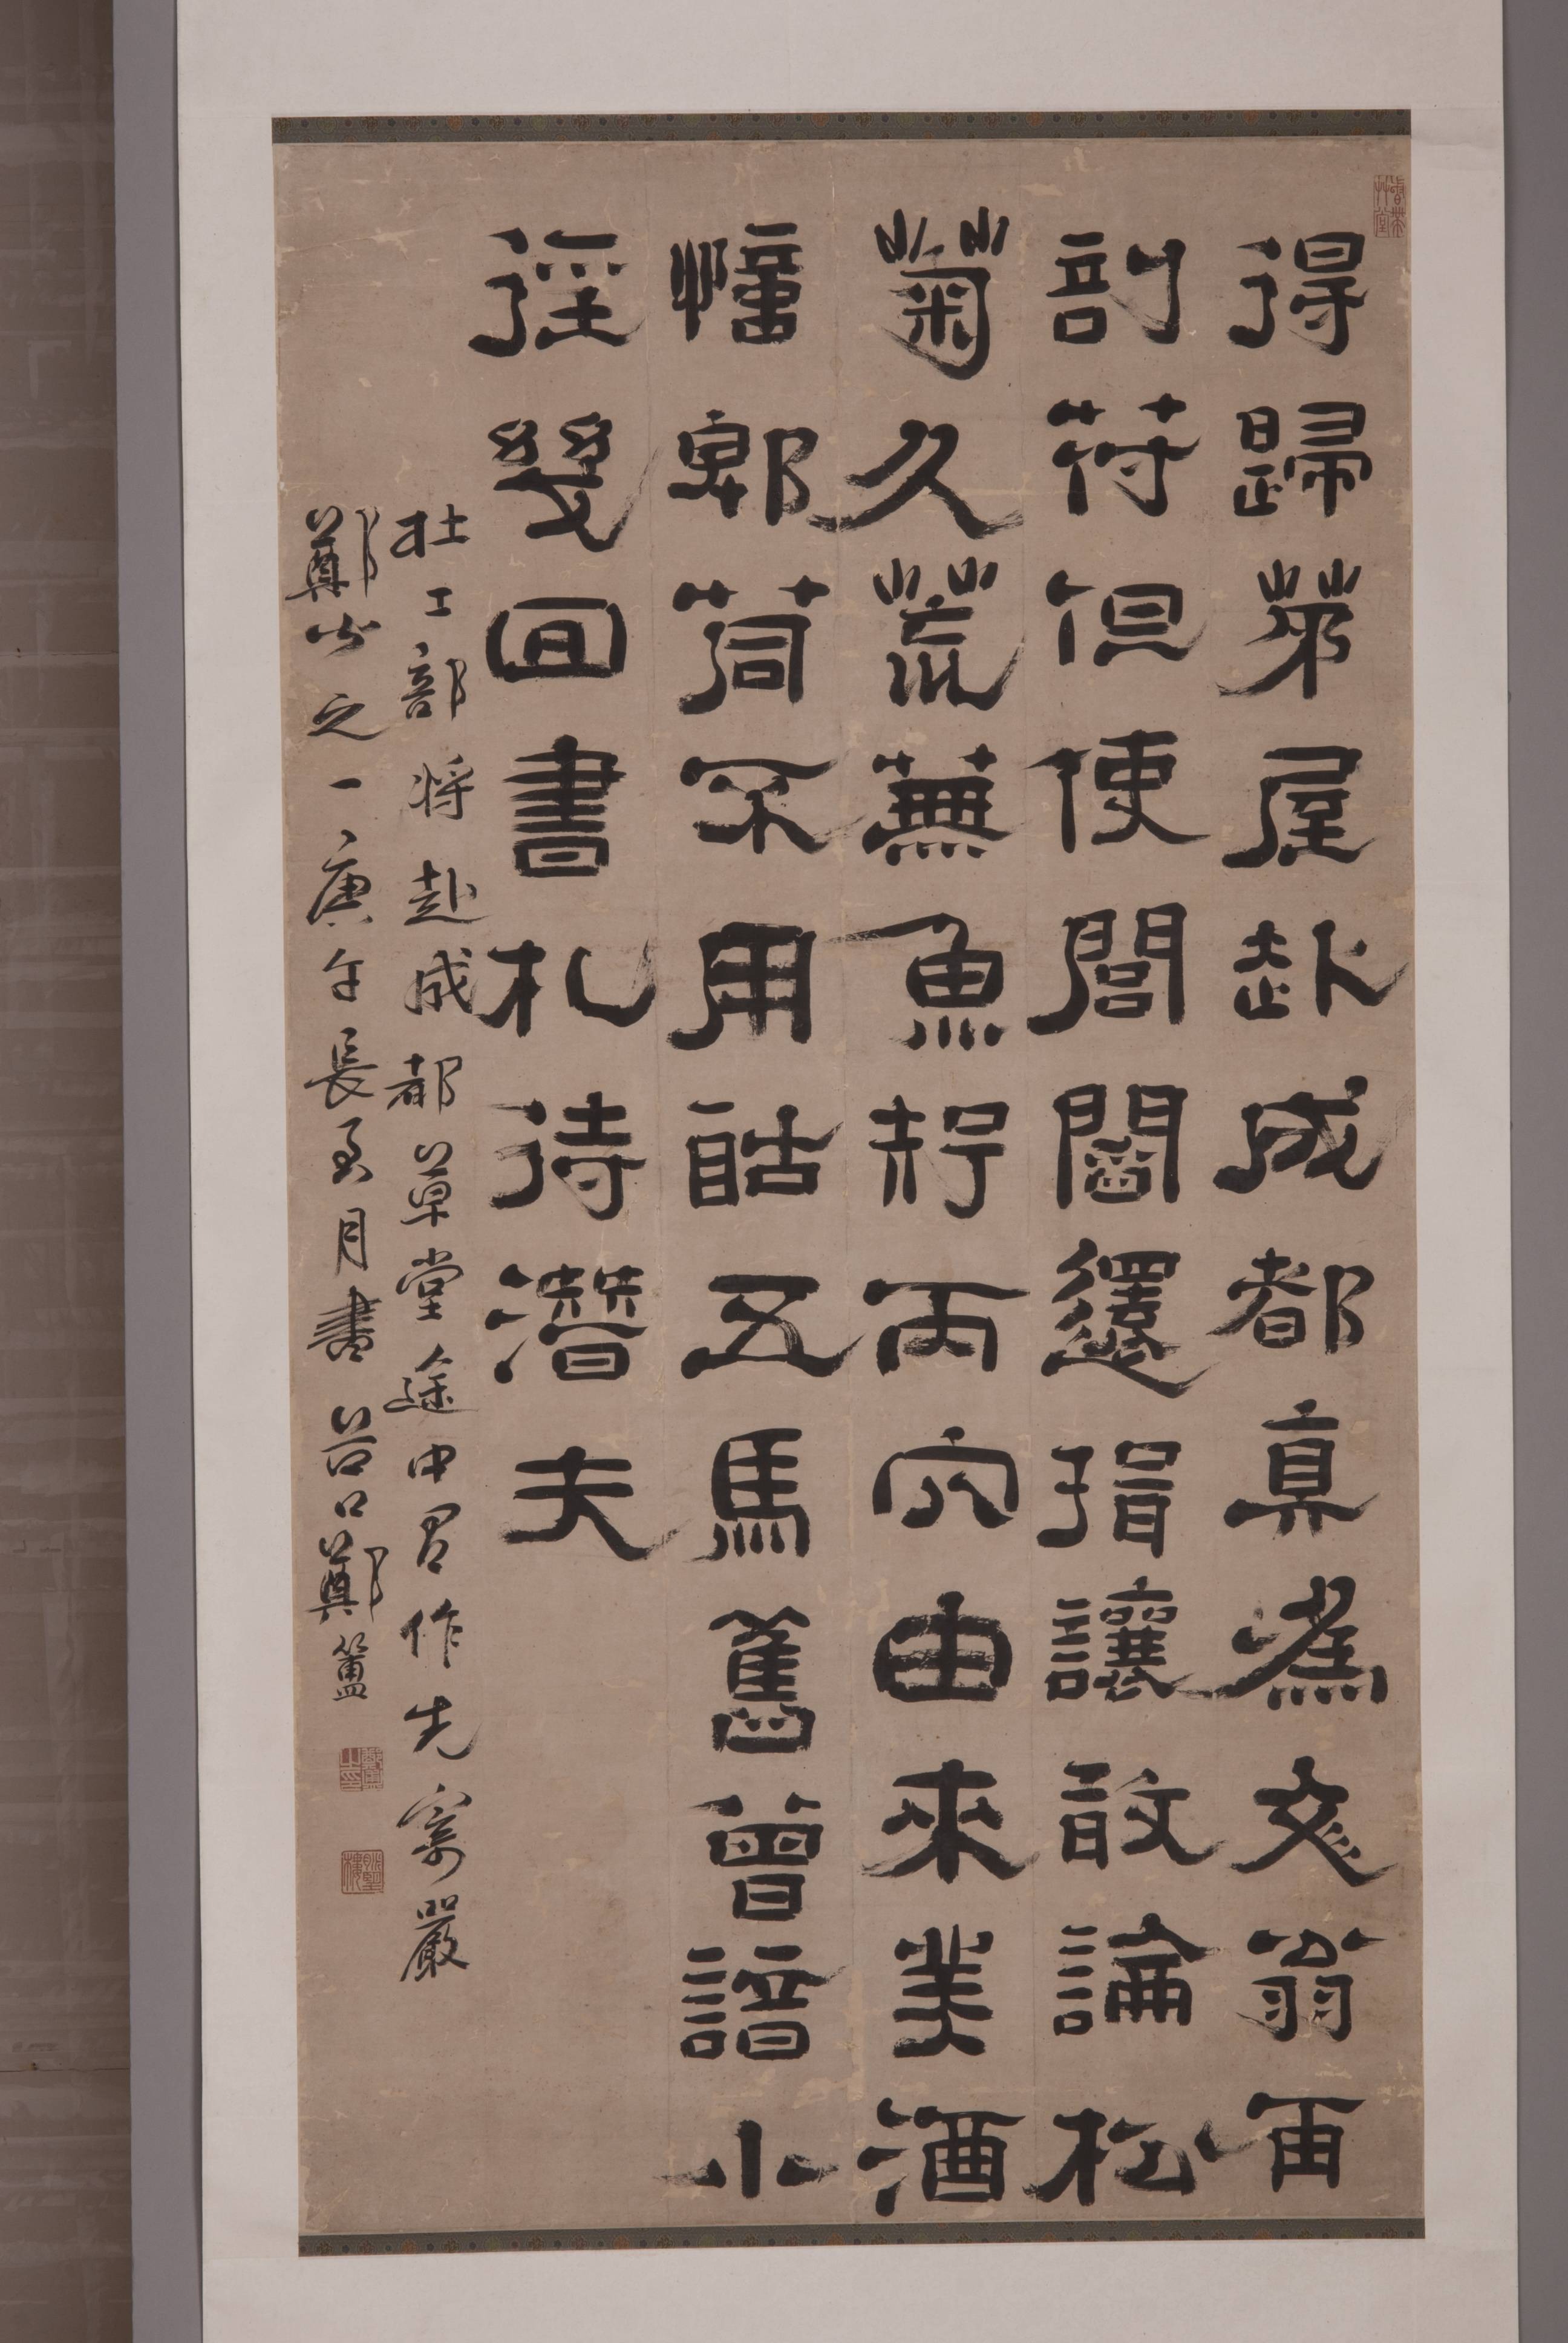 得歸茅屋赴成都真為文翁再
剖符但使閭閻還揖讓敢論松
菊久荒蕪魚知丙穴由來美酒
憶郫筒不用酤五馬舊曾諳小
徑幾回書札待潛夫
杜工部將赴成都草堂途中有作先寄嚴
鄭公之一庚午長至月書谷口鄭簠
鄭簠之印